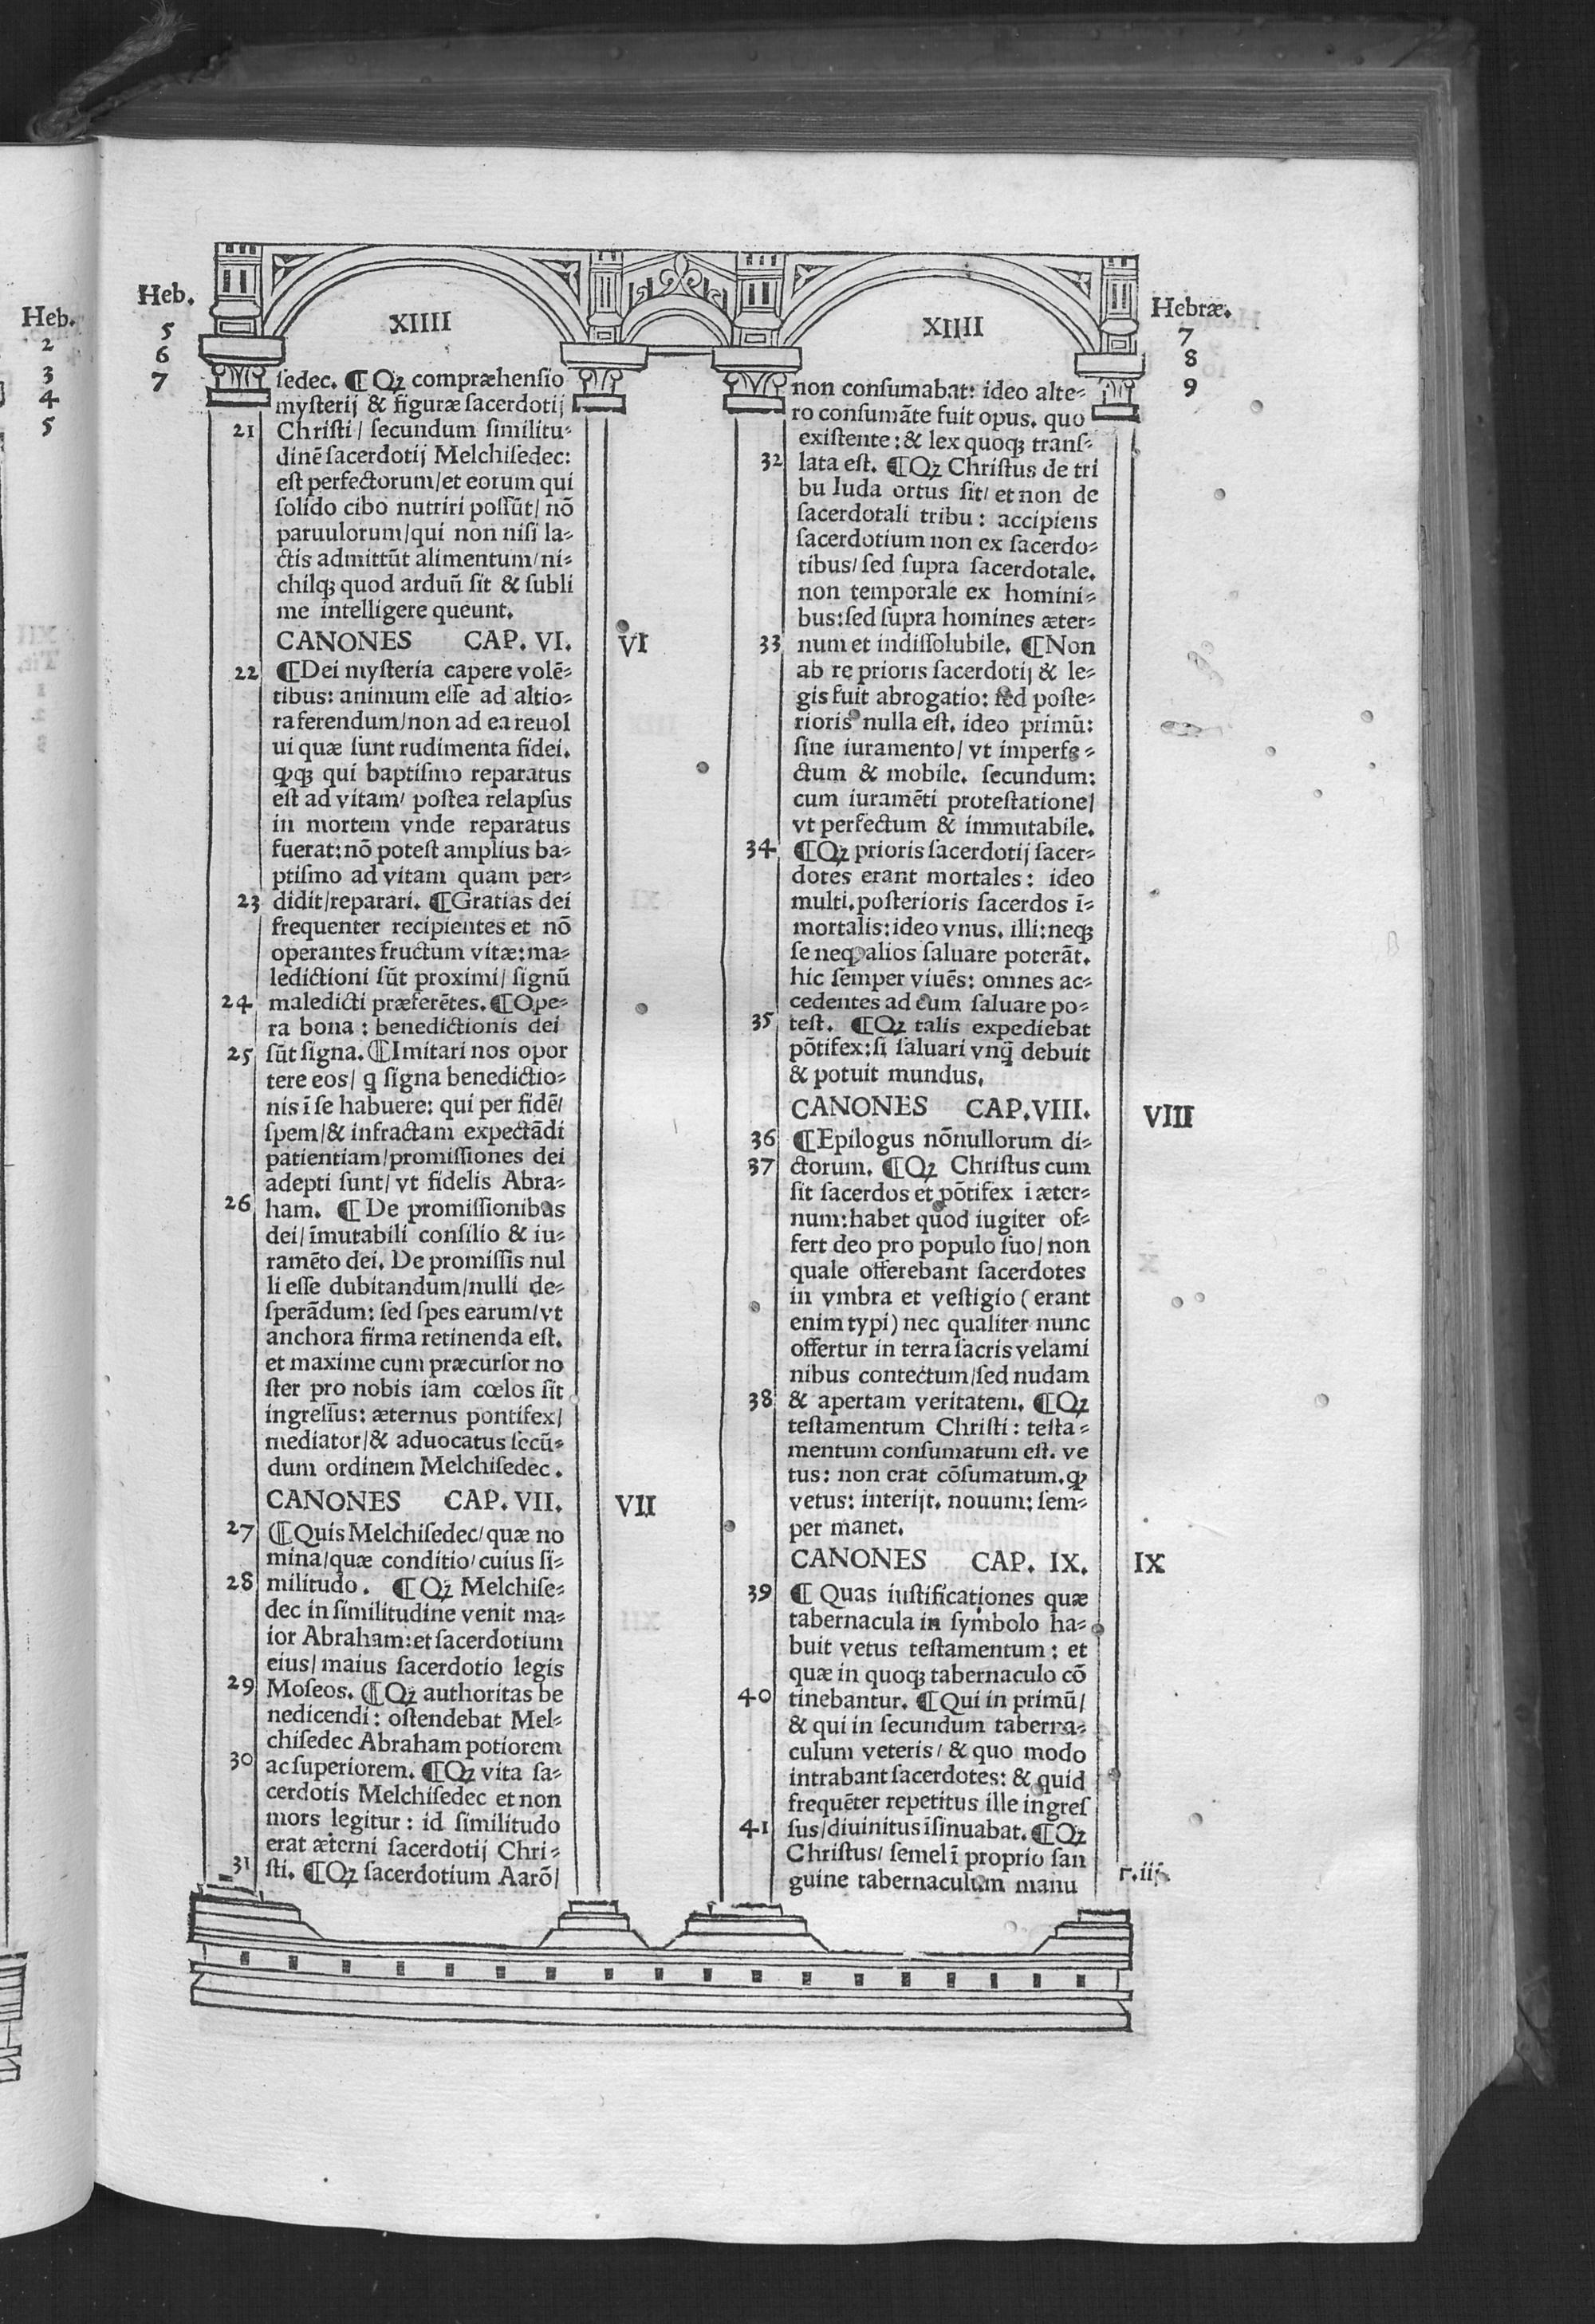 Heb.
2
3
4
5
Heb.
5
6
7
XIIII
ſedec. ¶ Qꝫ compræhenſio
myſterij & figuræ ſacerdotij
21 Chriſti / ſecundum ſimilitu-
dinē ſacerdotij Melchiſedec:
eſt perfectorum/et eorum qui
ſolido cibo nutriri poſſūt/ nō
paruulorum/qui non niſi la-
ctis admittūt alimentum/ni-
chilqꝫ quod arduū ſit & ſubli
me intelligere queunt.
CANONES CAP. VI.
VI
22 ¶Dei myſteria capere volē-
tibus: animum eſſe ad altio-
ra ferendum/non ad ea reuol
ui quæ ſunt rudimenta fidei.
ꝙqꝫ qui baptiſmo reparatus
eſt ad vitam/ poſtea relapſus
in mortem vnde reparatus
fuerat:nō poteſt amplius ba-
ptiſmo ad vitam quam per-
23 didit/reparari. ¶Gratias dei
frequenter recipientes et nō
operantes fructum vitæ:ma-
ledictioni ſūt proximi/ ſignū
24 maledicti præferētes. ¶Ope-
ra bona : benedictionis dei
25 ſūt ſigna. ¶Imitari nos opor
tere eos/ q̄ ſigna benedictio-
nis ī ſe habuere: qui per fidē/
ſpem/& infractam expectādi
patientiam/promiſſiones dei
adepti ſunt/ vt fidelis Abra-
26 ham. ¶ De promiſſionibus
dei/ īmutabili conſilio & iu-
ramēto dei. De promiſſis nul
li eſſe dubitandum/nulli de-
ſperādum: ſed ſpes earum/vt
anchora firma retinenda eſt.
et maxime cum præcurſor no
ſter pro nobis iam cœlos ſit
ingreſſus: æternus pontifex/
mediator/& aduocatus ſecū-
dum ordinem Melchiſedec.
CANONES CAP. VII.
VII
27 ¶Quis Melchiſedec/ quæ no
mina/quæ conditio/ cuius ſi-
28 militudo. ¶ Qꝫ Melchiſe-
dec in ſimilitudine venit ma-
ior Abraham:et ſacerdotium
eius/ maius ſacerdotio legis
29 Moſeos. ¶Qꝫ authoritas be
nedicendi: oſtendebat Mel-
chiſedec Abraham potiorem
30 ac ſuperiorem. ¶Qꝫ vita ſa-
cerdotis Melchiſedec et non
mors legitur : id ſimilitudo
erat æterni ſacerdotij Chri-
31 ſti. ¶Qꝫ ſacerdotium Aarō/
XIIII
Hebræ.
7
8
9
non conſumabat: ideo alte-
ro conſumāte fuit opus. quo
exiſtente: & lex quoqꝫ tranſ-
32 lata eſt. ¶Qꝫ Chriſtus de tri
bu Iuda ortus ſit/ et non de
ſacerdotali tribu : accipiens
ſacerdotium non ex ſacerdo-
tibus/ ſed ſupra ſacerdotale.
non temporale ex homini-
bus:ſed ſupra homines æter-
33 num et indiſſolubile. ¶Non
ab re prioris ſacerdotij & le-
gis fuit abrogatio: ſed poſte-
rioris nulla eſt. ideo primū:
ſine iuramento/ vt imperfe-
ctum & mobile. ſecundum:
cum iuramēti proteſtatione/
vt perfectum & immutabile.
34 ¶Qꝫ prioris ſacerdotij ſacer-
dotes erant mortales: ideo
multi. poſterioris ſacerdos ī-
mortalis:ideo vnus. illi:neqꝫ
ſe neqꝫ alios ſaluare poterāt.
hic ſemper viuēs: omnes ac-
cedentes ad eum ſaluare po-
35 teſt. ¶Qꝫ talis expediebat
pōtifex:ſi ſaluari vnq̄ debuit
& potuit mundus.
CANONES CAP.VIII.
VIII
36 ¶Epilogus nōnullorum di-
37 ctorum. ¶Qꝫ Chriſtus cum
ſit ſacerdos et pōtifex ī æter-
num:habet quod iugiter of-
fert deo pro populo ſuo/ non
quale offerebant ſacerdotes
in vmbra et veſtigio (erant
enim typi) nec qualiter nunc
offertur in terra ſacris velami
nibus contectum/ſed nudam
38 & apertam veritatem. ¶Qꝫ
teſtamentum Chriſti : teſta-
mentum conſumatum eſt. ve
tus: non erat cōſumatum. ꝙ
vetus: interijt. nouum: ſem-
per manet.
CANONES CAP. IX.
IX
39 ¶ Quas iuſtificationes quæ
tabernacula in ſymbolo ha-
buit vetus teſtamentum : et
quæ in quoqꝫ tabernaculo cō
40 tinebantur. ¶Qui in primū/
& qui in ſecundum taberna-
culum veteris/ & quo modo
intrabant ſacerdotes: & quid
frequēter repetitus ille ingreſ
41 ſus/diuinitus īſinuabat. ¶Qꝫ
Chriſtus/ ſemel ī proprio ſan
guine tabernaculum manu
r.iij.